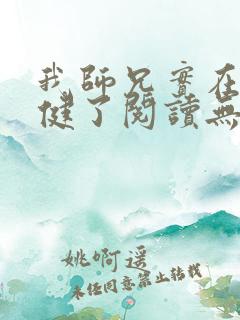 我師兄實在
健了閱讀無
姚啊遥
未经同意禁止转载